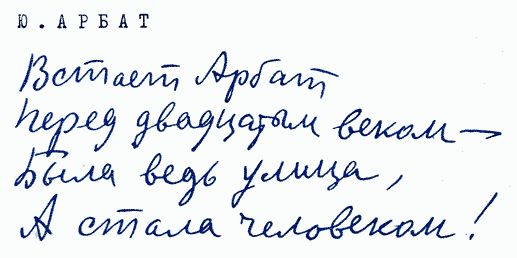 Ю. АРБАТ
Встает Арбат
Перед двадцатым веком —
Была ведь улица,
А стала человеком!